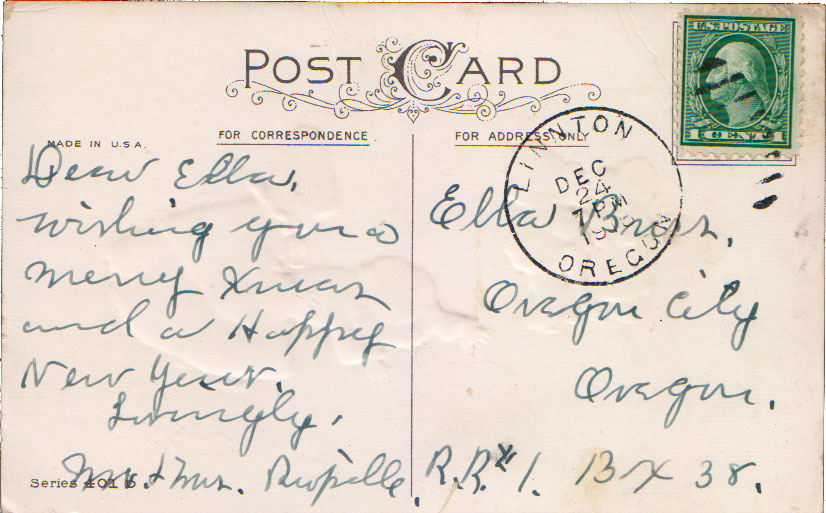 POST CARD
MADE IN U.S.A.
FOR CORRESPONDENCE
FOR ADDRESS ONLY
U.S. POSTAGE
1 CENT 1
LINNTON
DEC
24
7 PM
OREGON
Dear Ella,
wishing you a
merry Xmas
and a Happy
New Year.
Lovingly,
Mr. & Mrs.
Series 401 B
Ella
Oregon City
Oregon.
R.R. #1. Box 38.